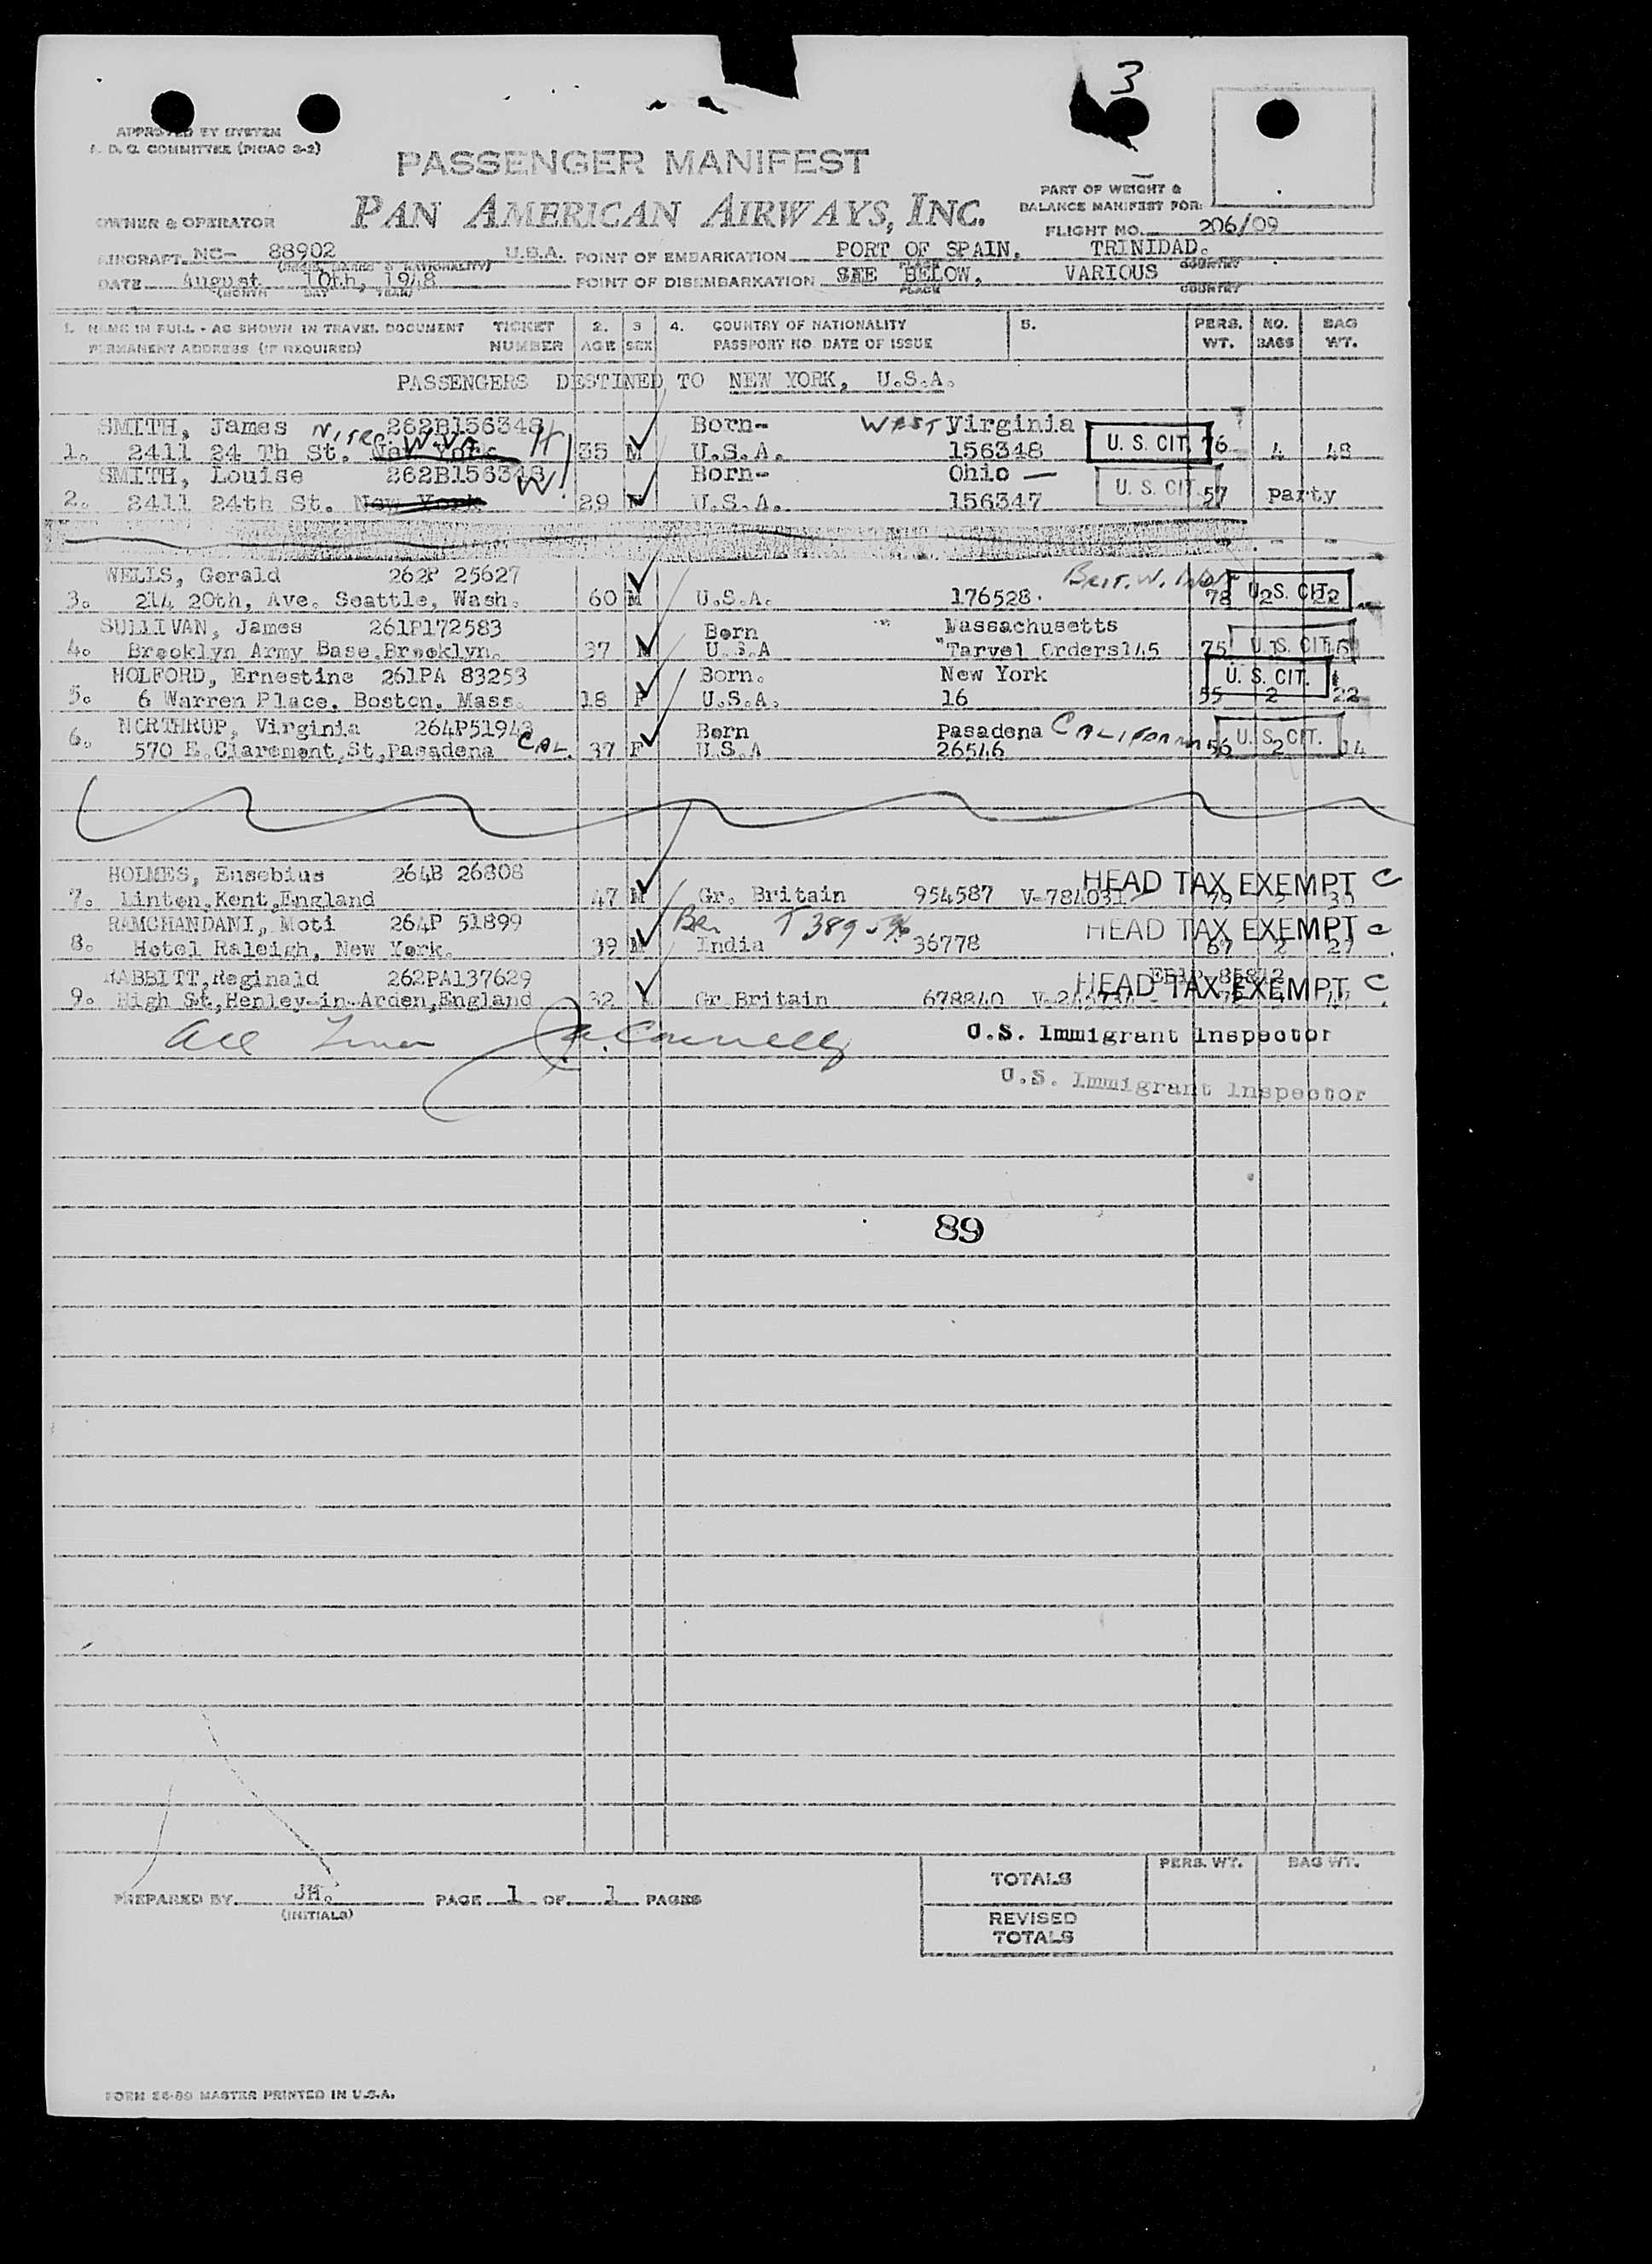 3
APPROVED BY SYSTEM
F. D. Q. COMMITTEE (PICAO 2-2)
PASSENGER MANIFEST
PAN AMERICAN AIRWAYS, INC.
PART OF WEIGHT &
BALANCE MANIFEST FOR:
OWNER & OPERATOR
FLIGHT NO. 206/09
AIRCRAFT NC- 88902 U.S.A. POINT OF EMBARKATION PORT OF SPAIN, TRINIDAD.
(MARKS & NATIONALITY) PLACE COUNTRY
DATE August 10th, 1948 POINT OF DISEMBARKATION SEE BELOW, VARIOUS
(MONTH DAY YEAR) PLACE COUNTRY
1. NAME IN FULL - AS SHOWN IN TRAVEL DOCUMENT TICKET 2. 3 4. COUNTRY OF NATIONALITY 5. PERS. NO. BAG
PERMANENT ADDRESS (IF REQUIRED) NUMBER AGE SEX PASSPORT NO. DATE OF ISSUE WT. BAGS WT.
PASSENGERS DESTINED TO NEW YORK, U.S.A.
SMITH, James Nitro W.VA 262B156348 H Born- WEST Virginia
1. 2411 24 Th St. New York 35 M U.S.A. 156348 U. S. CIT. 76 4 48
SMITH, Louise 262B156348 W Born- Ohio —
2. 2411 24th St. New York 29 F U.S.A. 156347 U. S. CIT. 57 party
WELLS, Gerald 262P 25627 BRIT. W. IND
3. 214 20th, Ave. Seattle, Wash. 60 M U.S.A. 176528. 78 U.S. CIT. 2 22
SULLIVAN, James 261P172583 Born Massachusetts
4. Brooklyn Army Base,Brooklyn. 37 M U.S.A "Tarvel Orders145 75 U.S. CIT.
HOLFORD, Ernestine 261PA 83253 Born. New York U. S. CIT.
5. 6 Warren Place, Boston, Mass. 18 F U.S.A. 16 55 2 22
NORTHRUP, Virginia 264P51943 Born Pasadena CALIFORNIA
6. 570 E.Claremont,St,Pasadena CAL. 37 F U.S.A 26546 56 U. S. CIT. 2 14
HOLMES, Eusebius 264B 26808 HEAD TAX EXEMPT C
7. Linton,Kent,England 47 M Gr. Britain 954587 V-784031 79
RAMCHANDANI, Moti 264P 51899 HEAD TAX EXEMPT C
8. Hotel Raleigh, New York. 39 M India 36778 67 2 27
BABBITT,Reginald 262PA137629 HEAD TAX EXEMPT C
9. High St,Henley-in-Arden,England 32 Gr.Britain 678840
All U.S. Immigrant Inspector
U.S. Immigrant Inspector
89
PREPARED BY JH. PAGE 1 OF 1 PAGES
(INITIALS)
PERS. WT. BAG WT.
TOTALS
REVISED
TOTALS
FORM 26-89 MASTER PRINTED IN U.S.A.